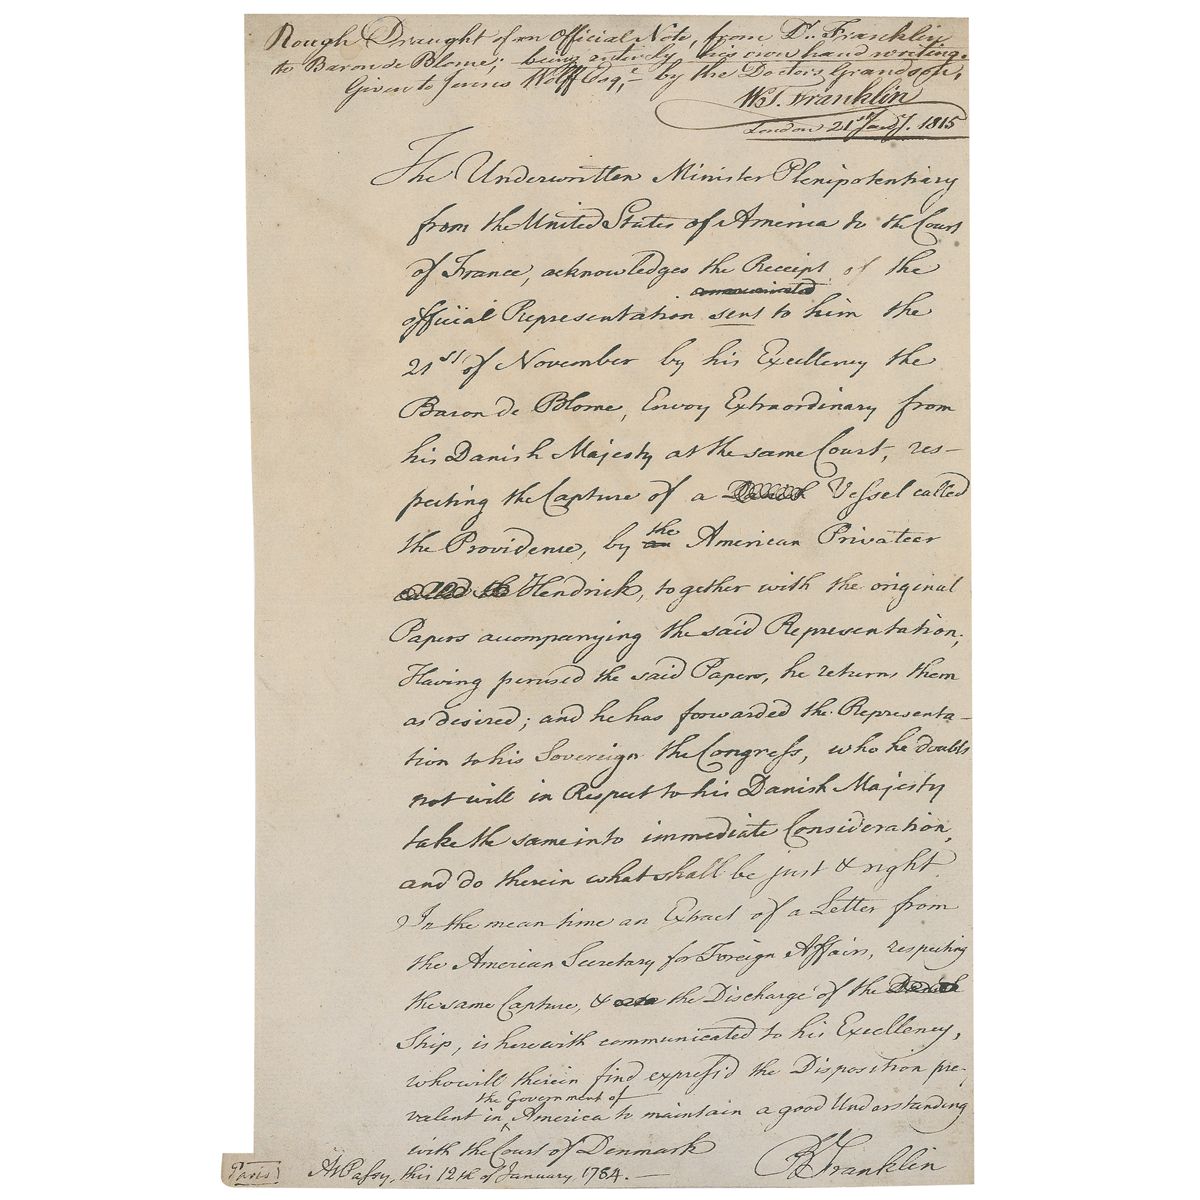 Rough Draught of an Official Note, from Dr. Franklin
to Baron de Blome; being entirely his own hand writing.
Given to Jenns Wolff Esqr,— by the Doctor's Grandson,
Wm. T. Franklin
London 21st Jany. 1815
The Underwritten Minister Plenipotentiary
from the United States of America to the Court
of France, acknowledges the Receipt of the
communicated
official Representation sent to him the
21st of November by his Excellency the
Baron de Blome, Envoy Extraordinary from
his Danish Majesty at the same Court, res-
pecting the Capture of a Danish Vessel called
the
the Providence, by an American Privateer
called the Hendrick, together with the original
Papers accompanying the said Representation;
Having perused the said Papers, he returns them
as desired; and he has forwarded the Representa-
tion to his Sovereign the Congress, who he doubts
not will in Respect to his Danish Majesty
take the same into immediate Consideration,
and do therein what shall be just & right.
In the mean time an Extract of a Letter from
the American Secretary for Foreign Affairs, respecting
the same Capture, & the Discharge of the Danish
Ship, is herewith communicated to his Excellency,
who will therein find express'd the Disposition pre-
the Government of
valent in America to maintain a good Understanding
with the Court of Denmark
B Franklin
(Paris) At Passy, this 12th of January, 1784.—